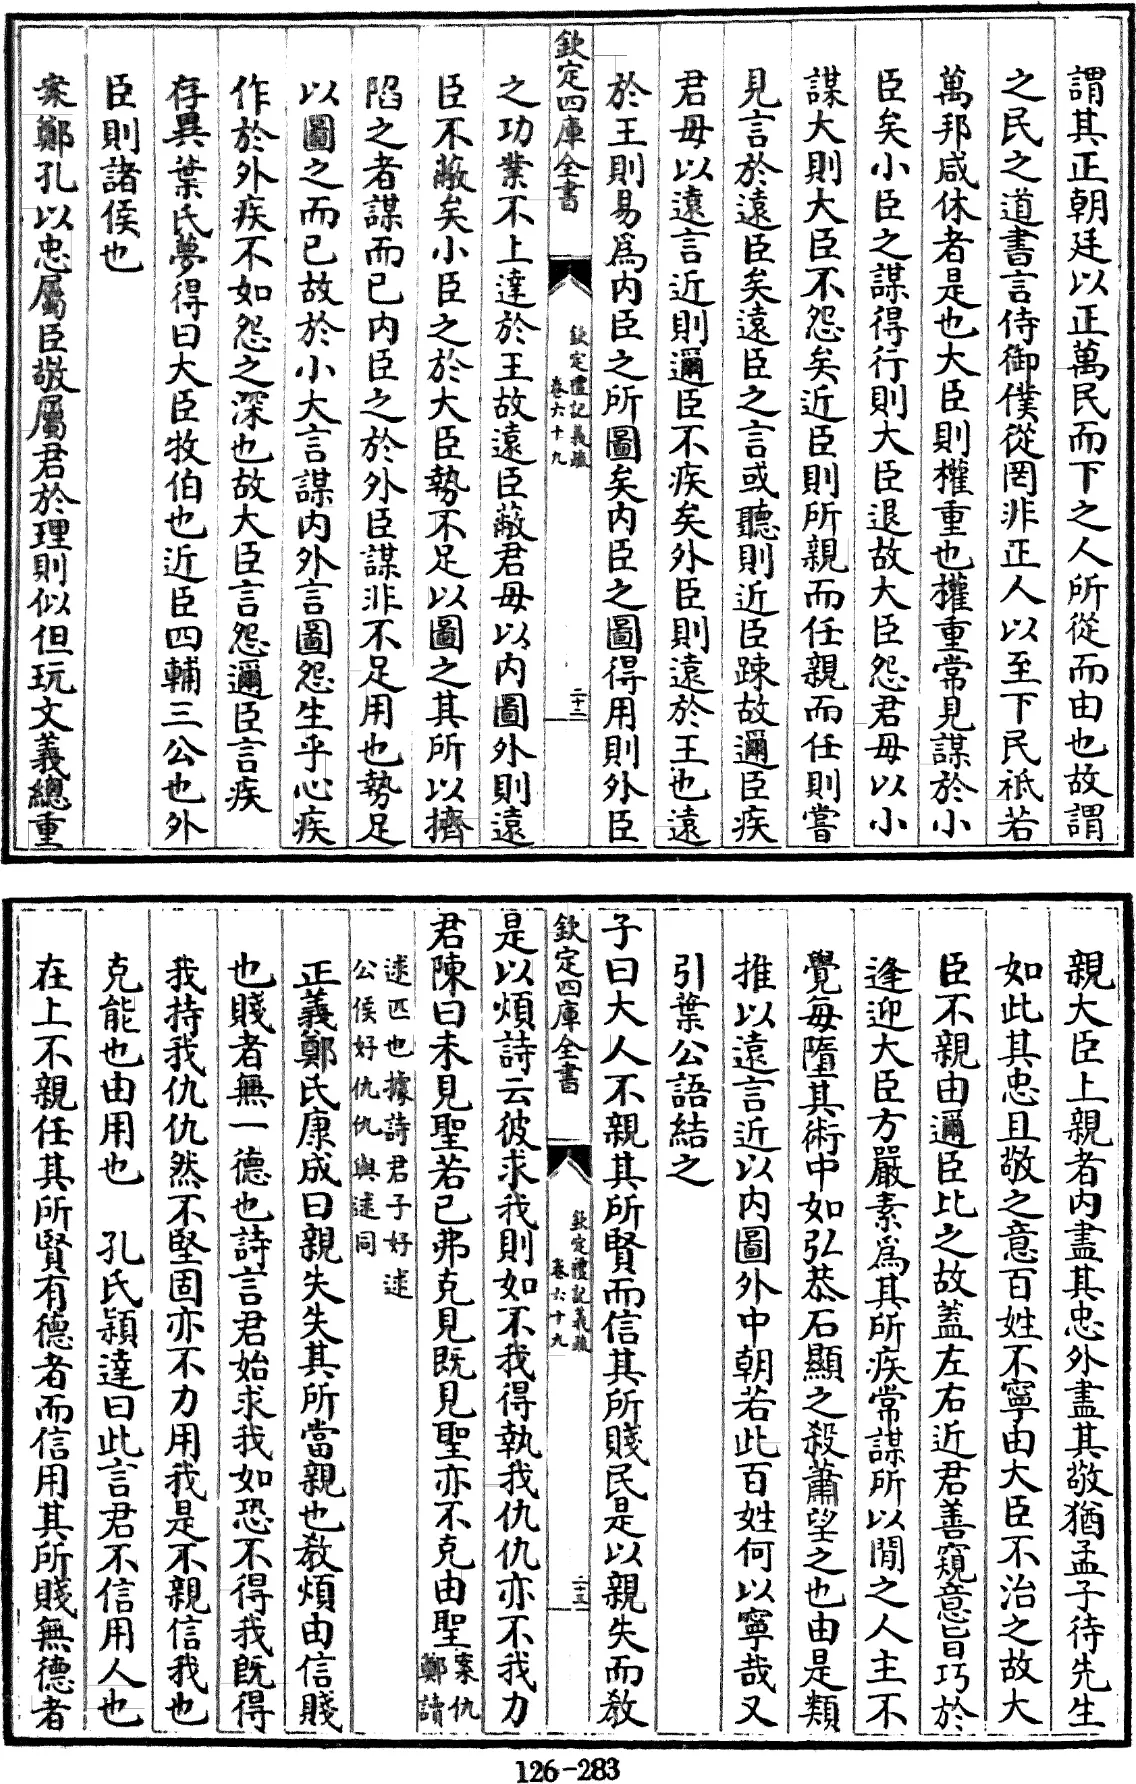 謂其正朝廷以正萬民而下之人所從而由也故謂
之民之道書言侍御僕從罔非正人以至下民祇若
萬邦咸休者是也大臣則權重也權重常見謀於小
臣矣小臣之謀得行則大臣退故大臣怨君毋以小
謀大則大臣不怨矣近臣則所親而任親而任則嘗
見言於遠臣矣遠臣之言或聽則近臣踈故邇臣疾
君毋以遠言近則邇臣不疾矣外臣則遠於王也遠
於王則易爲内臣之所圖矣内臣之圖得用則外臣
欽定四庫全書
欽定禮記義疏
卷六十九
二十二
之功業不上達於王故遠臣蔽君毋以内圖外則遠
臣不蔽矣小臣之於大臣勢不足以圖之其所以擠
陷之者謀而已内臣之於外臣謀非不足用也勢足
以圖之而已故於小大言謀内外言圖怨生乎心疾
作於外疾不如怨之深也故大臣言怨邇臣言疾
存異葉氏夢得曰大臣牧伯也近臣四輔三公也外
臣則諸侯也
案鄭孔以忠屬臣敬屬君於理則似但玩文義總重
親大臣上親者内盡其忠外盡其敬猶孟子待先生
如此其忠且敬之意百姓不寧由大臣不治之故大
臣不親由邇臣比之故蓋左右近君善窺意旨巧於
逢迎大臣方嚴素爲其所疾常謀所以閒之人主不
覺每墮其術中如弘恭石顯之殺蕭望之也由是類
推以遠言近以内圖外中朝若此百姓何以寧哉又
引葉公語結之
子曰大人不親其所賢而信其所賤民是以親失而敎
欽定四庫全書
欽定禮記義疏
卷六十九
二十三
是以煩詩云彼求我則如不我得執我仇仇亦不我力
君陳曰未見聖若已弗克見既見聖亦不克由聖案仇鄭讀
逑匹也據詩君子好逑
公侯好仇仇與逑同
正義鄭氏康成曰親失失其所當親也敎煩由信賤
也賤者無一德也詩言君始求我如恐不得我既得
我持我仇仇然不堅固亦不力用我是不親信我也
克能也由用也 孔氏穎達曰此言君不信用人也
在上不親任其所賢有德者而信用其所賤無德者
126-283